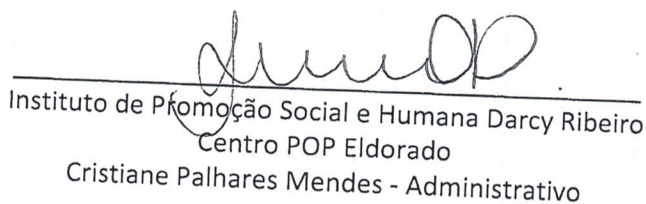 Instituto de Promoção Social e Humana Darcy Ribeiro
Centro POP Eldorado
Cristiane Palhares Mendes - Administrativo